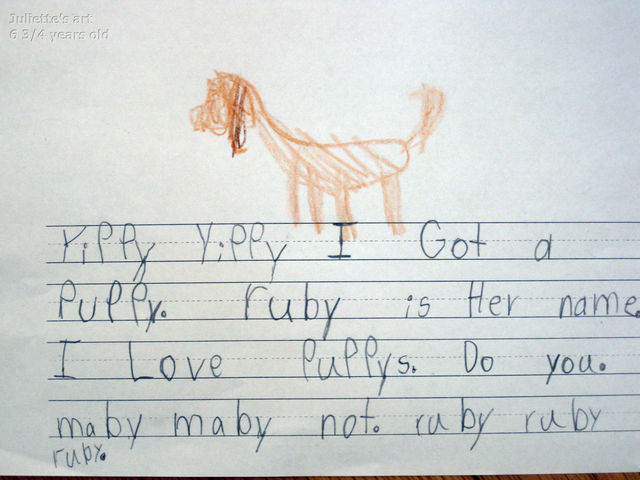 Juliette's art
6 3/4 years old
Yippy Yippy I Got a
Puppy. ruby is Her name.
I Love Puppys. Do you.
maby maby not. ruby ruby
ruby.